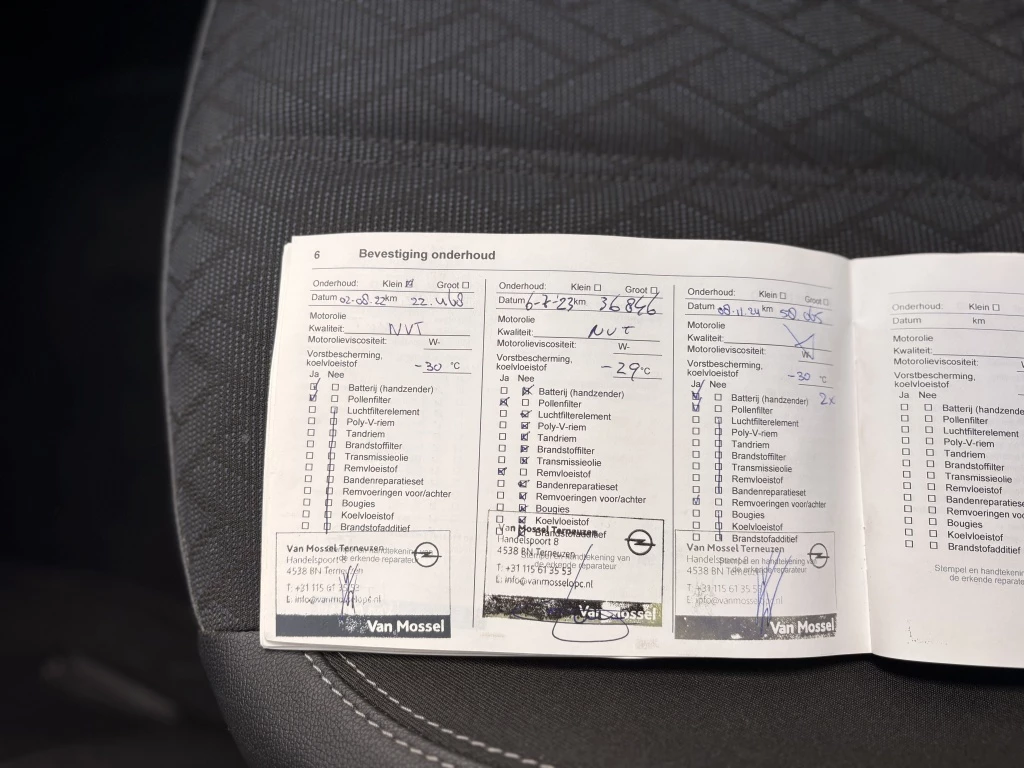 6 Bevestiging onderhoud
Onderhoud: Klein Groot
Datum 02-08-22 km 22.468
Motorolie
Kwaliteit: NVT
Motorolieviscositeit: W-
Vorstbescherming,
koelvloeistof -30 °C
Ja Nee
Batterij (handzender)
Pollenfilter
Luchtfilterelement
Poly-V-riem
Tandriem
Brandstoffilter
Transmissieolie
Remvloeistof
Bandenreparatieset
Remvoeringen voor/achter
Bougies
Koelvloeistof
Brandstofadditief
Stempel en handtekening van
de erkende reparateur
Van Mossel Terneuzen
Handelspoort 8
4538 BN Terneuzen
T: +31 115 61 35 53
E: info@vanmosselopc.nl
Van Mossel
Onderhoud: Klein Groot
Datum 6-7-23 km 36846
Motorolie
Kwaliteit: NVT
Motorolieviscositeit: W-
Vorstbescherming,
koelvloeistof -29 °C
Ja Nee
Batterij (handzender)
Pollenfilter
Luchtfilterelement
Poly-V-riem
Tandriem
Brandstoffilter
Transmissieolie
Remvloeistof
Bandenreparatieset
Remvoeringen voor/achter
Bougies
Koelvloeistof
Brandstofadditief
Stempel en handtekening van
de erkende reparateur
Van Mossel Terneuzen
Handelspoort 8
4538 BN Terneuzen
T: +31 115 61 35 53
E: info@vanmosselopc.nl
Van Mossel
Onderhoud: Klein Groot
Datum 08-11-24 km
Motorolie
Kwaliteit:
Motorolieviscositeit: W-
Vorstbescherming,
koelvloeistof -30 °C
Ja Nee
Batterij (handzender) 2x
Pollenfilter
Luchtfilterelement
Poly-V-riem
Tandriem
Brandstoffilter
Transmissieolie
Remvloeistof
Bandenreparatieset
Remvoeringen voor/achter
Bougies
Koelvloeistof
Brandstofadditief
Stempel en handtekening van
de erkende reparateur
Van Mossel Terneuzen
Handelspoort 8
4538 BN Terneuzen
T: +31 115 61 35 53
E: info@vanmosselopc.nl
Van Mossel
Onderhoud: Klein
Datum km
Motorolie
Kwaliteit:
Motorolieviscositeit: W-
Vorstbescherming,
koelvloeistof
Ja Nee
Batterij (handzender
Pollenfilter
Luchtfilterelement
Poly-V-riem
Tandriem
Brandstoffilter
Transmissieolie
Remvloeistof
Bandenreparatieset
Remvoeringen voor
Bougies
Koelvloeistof
Brandstofadditief
Stempel en handtekening
de erkende reparateur